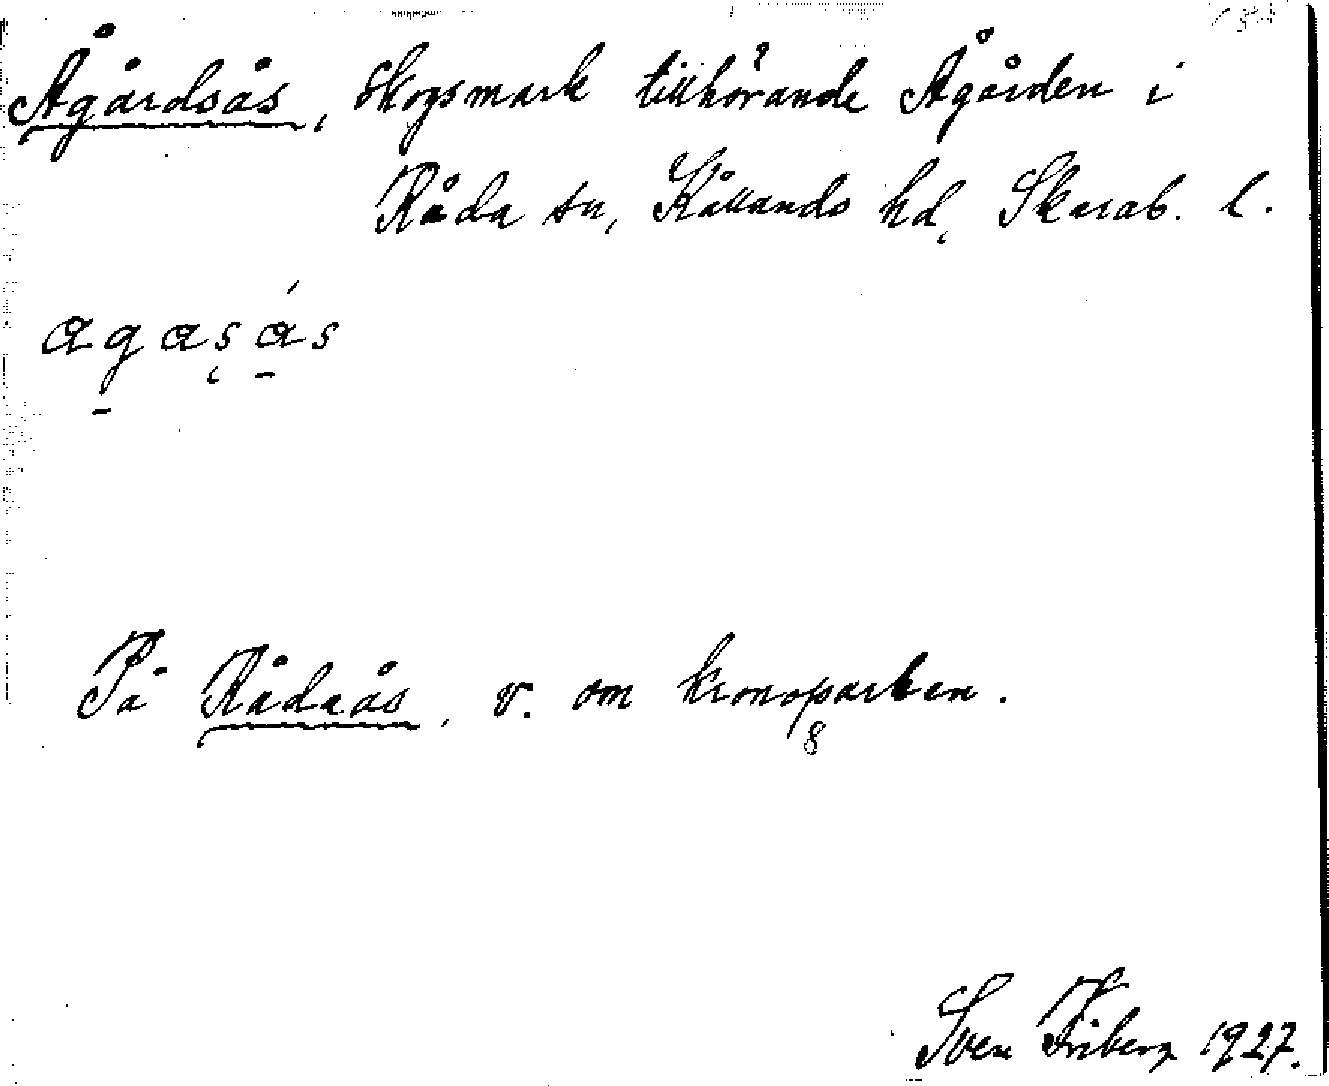 Ågårdsås, Skogsmark tillhörande Ågården i
Råda sn, Kållands hd, Skarab. l.
På Rådaås, v. om kronoparken.
Sven Friberg 1927.